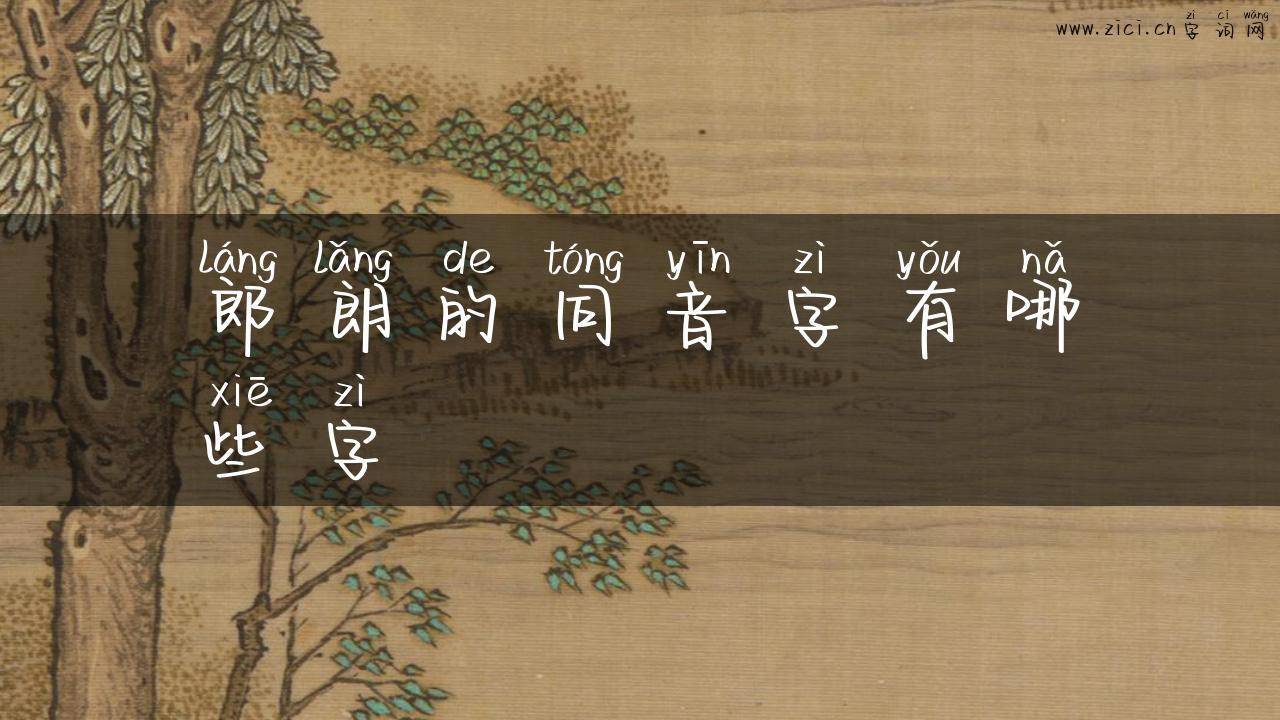 zì cí wǎng
www.zici.cn 字词网
láng lǎng de tóng yīn zì yǒu nǎ
郎朗的同音字有哪
xiē zì
些字